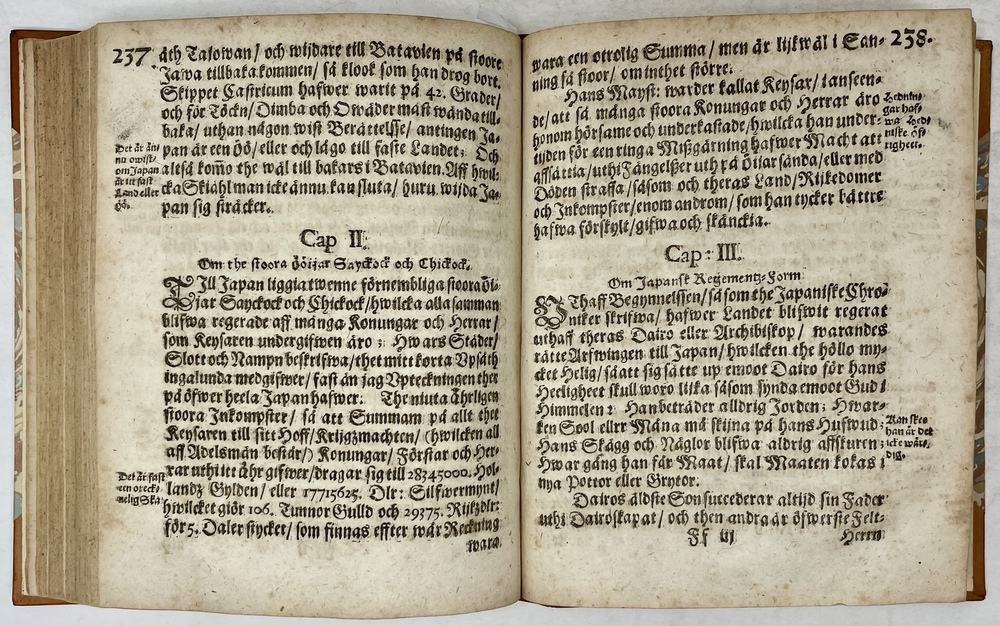 237
åth Taiowan/ och wijdare till Batavien på stoore
Jawa tillbaka kommen/ så klook som han drog bort.
Skippet Castricum hafwer warit på 42. Grader/
och för Töckn/ Dimba och Owäder måst wända till-
baka/ uthan någon wist Berättelse/ antingen Ja-
pan är een öö/ eller och lågo till faste Landet: Och
altså kom̃o the wäl till bakars i Batavien. Aff hwil-
cka Skiähl man icke ännu kan sluta/ huru wijda Ja-
pan sig sträcker.
Det är än-
nu owist/
om Japan
är itt fast
Land eller
öö.
Cap II.
Om the stoora ööijar Sayckock och Chickock.
Till Japan liggia twenne förnembliga stoora öi-
jar Sayckock och Chickock/ hwilcka alla samman
blifwa regerade aff många Konungar och Herrar/
som Keysaren undergifwen äro; Hwars Städer/
Slott och Nampn beskrifwa/ thet mitt korta Vpsåth
ingalunda medgifwer/ fast än jag Vpteckningen ther
på öfwer heela Japan hafwer. The niuta åhrligen
stoora Inkompster/ så att Summam på allt thet
Keysaren till sitt Hoff/ Krijgzmachten/ (hwilcken all
aff Adelsmän består/) Konungar/ Förstar och Her-
rar uthi itt åhr gifwer/ dragar sig till 28345000. Hol-
landz Gylden/ eller 17715625. Dlr: Silfwermynt/
hwilcket giör 106. Tunnor Guld och 29375. Rijkzdlr:
för 5. Daler stycket/ som finnas effter wår Reckning
wara
Det är fast
een oreck-
nelig Skä
238.
wara een otrolig Summa/ men är lijkwäl i San-
ning så stoor/ om inthet större.
Hans Mayst: warder kallat Keysar/ i anseen-
de/ att så många stoora Konungar och Herrar äro
honom hörsame och underkastade/ hwilcka han under-
tijden för een ringa Mißgärning hafwer Macht att
affsättia/ uthi Fängelßer uth på öijar sända/ eller med
Döden straffa/ såsom och theras Land/ Rijkedomer
och Inkompster/ enom androm/ som han tycker bättre
hafwa förskylt/ gifwa och skänckia.
Cap: III.
Om Japansk Regementz-Form
UThaff Begynnelssen/ så som the Japaniske Chrö-
niker skrifwa/ hafwer Landet blifwit regerat
uthaff theras Dairo eller Archibiskop/ warandes
rätte Arfwingen till Japan/ hwilcken the höllo my-
cket Helig/ så att sig sätte up emoot Dairo för hans
Heeligheet skull woro lika såsom synda emoot Gud i
Himmelen: Han beträder alldrig Jorden; Hwar-
ken Sool ellrr Måna må skijna på hans Hufwud;
Hans Skägg och Näglor blifwa aldrig affskuren;
Hwar gång han får Maat/ skal Maaten kokas i
nya Pottor eller Grytor.
Dairos äldste Son succederar altijd sin Fader
uthi Dairoskapat/ och then andra är öfwerste Felt-
Ff iij
Herrn
Kan skee
han är det
icke wär-
dig.